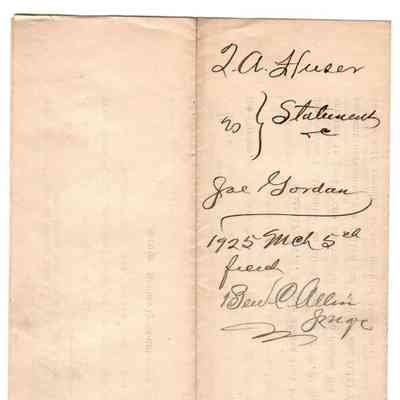 T.A. Huser
vs } Statement
Joe Gordan
1925 Mch 5th
filed
Ben C Allin
Judge